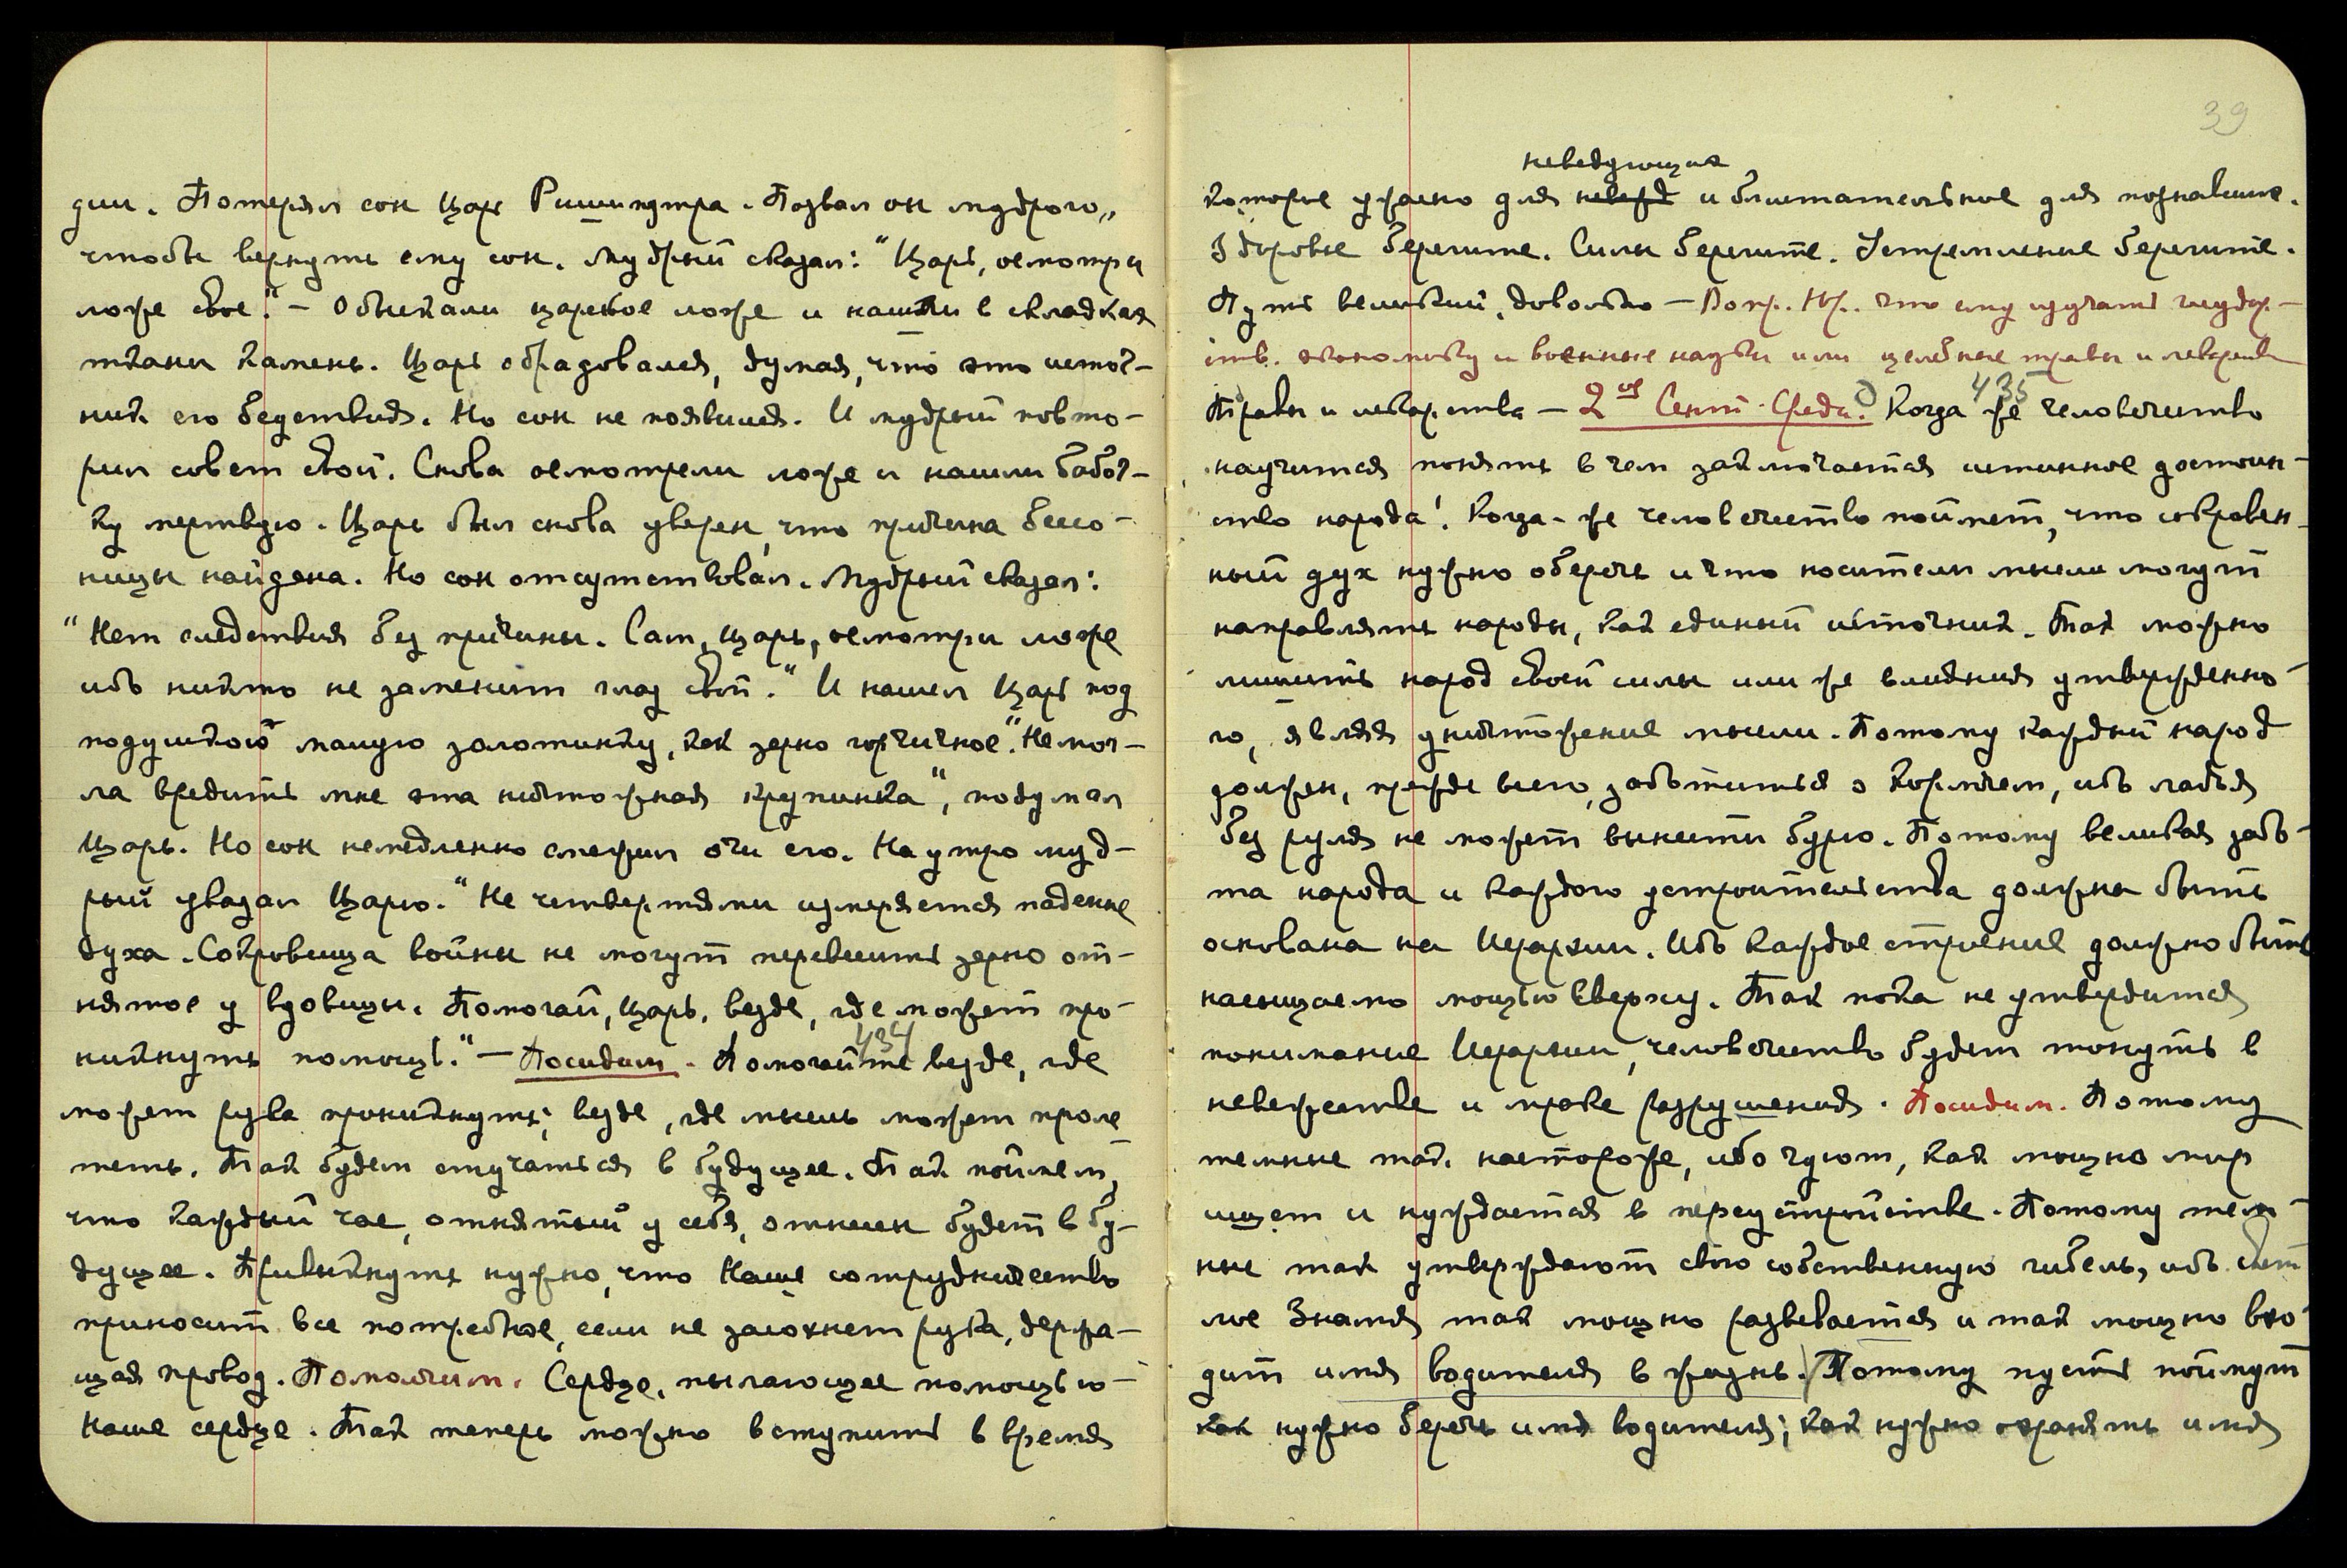 дии. Потерял сон Царь Ришинутра. Позвал он мудрого,
чтобы вернуть ему сон. Мудрый сказал: "Царь, осмотри
ложе свое." – Обыскали царское ложе и нашли в складках
ткани камень. Царь обрадовался, думая, что это источ-
ник его бедствия. Но сон не появился. И мудрый повто-
рил совет свой. Снова осмотрели ложе и нашли бабоч-
ку мертвую. Царь был снова уверен, что причина бессо-
ницы найдена. Но сон отсутствовал. Мудрый сказал:
"Нет следствия без причины. Сам, Царь, осмотри ложе
ибо никто не заменит глаз свой." И нашел Царь под
подушкой малую золотинку, как зерно горчичное. "Не мог-
ла вредить мне эта ничтожная крупинка", подумал
Царь. Но сон немедленно смежил очи его. На утро муд-
рый указал Царю. "Не четвертями измеряется падение
духа. Сокровища войны не могут перевесить зерно от-
нятое у вдовицы. Помогай, Царь, везде, где может про-
никнуть помощь." – Посидим. 434 Помогайте везде, где
может рука проникнуть; везде, где мысль может проле-
теть. Так будем стучаться в будущее. Так поймем,
что каждый час, отнятый у себя, отнесен будет в бу-
дущее. Привыкнуть нужно, что Наше сотрудничество
приносит все потребное, если не засохнет рука, держа-
щая провод. Помолчим. Сердце, пылающее помощью –
Наше сердце. Так теперь можно вступить в время
39
неведующих
которое ужасно для невежд и блистательное для познавших.
Здоровье берегите. Силы берегите. Устремление берегите.
Путь великий. довольно – Вопр. Юр. что ему изучать государ-
ств. экономику и военные науки или целебные травы и лекарства
Травы и лекарства – 2ое Сент. Среда. 435 Когда же человечество
научится понять в чем заключается истинное достоин-
ство народа! Когда-же человечество поймет, что сокровен-
ный дух нужно оберечь и что носители мысли могут
направлять народы, как единый источник. Так можно
лишить народ своей силы или же влияния утвержденно-
го, являя уничтожение мысли. Потому каждый народ
должен, прежде всего, заботиться о Кормчем, ибо ладья
без руля не может вынести бурю. Потому великая забо-
та народа и каждого устроительства должна быть
основана на Иерархии. Ибо каждое строение должно быть
насыщаемо мощью Сверху. Так пока не утвердится
понимание Иерархии, человечество будет тонуть в
невежестве и мраке разрушения. Посидим. Потому
темные так настороже, ибо чуют, как мощно мир
ищет и нуждается в переустройстве. Потому тем-
ные так утверждают свою собственную гибель, ибо свет-
лое Знамя так мощно развевается и так мощно вхо-
дит имя водителя в жизнь. Потому пусть поймут
как нужно беречь имя водителя; как нужно охранять имя